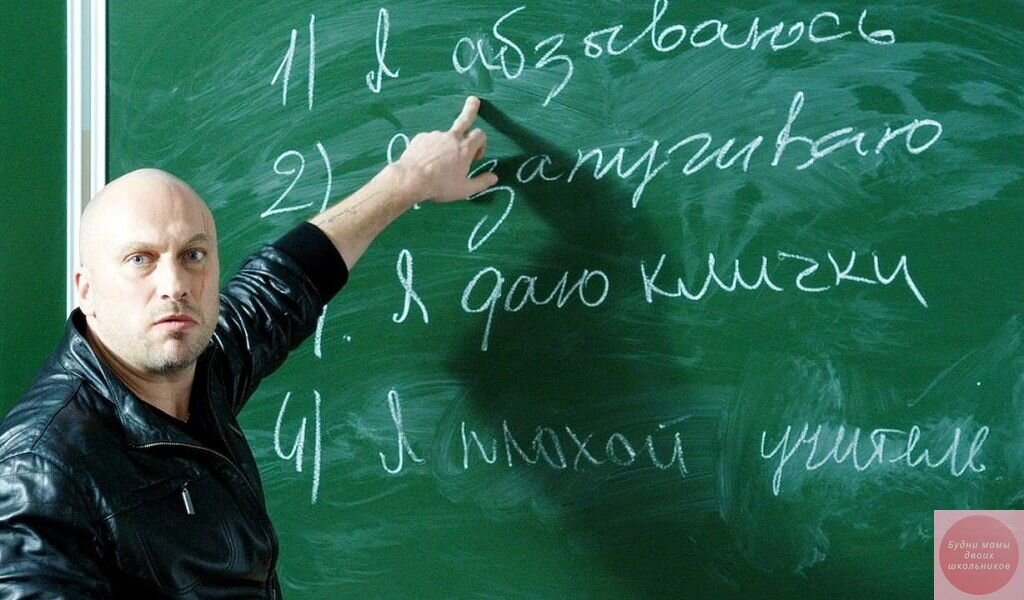 1) Я абзываюсь
2) Я запугиваю
3. Я даю клички
4) Я плохой учитель
Будни мамы
двоих
школьников